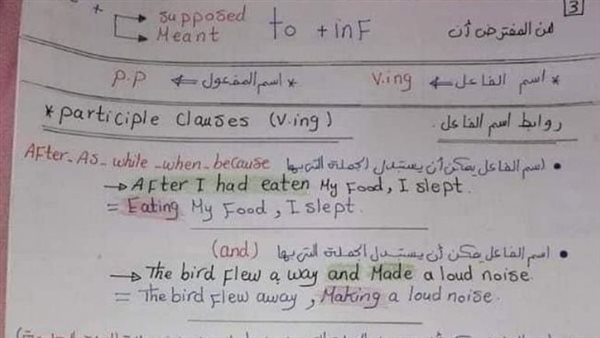 3
+ → supposed
→ Meant
to + inF
من المفترض أن
* اسم الفاعل ⇐ V.ing
* اسم المفعول ⇐ P.P
* participle clauses (V.ing)
روابط اسم الفاعل.
• اسم الفاعل يمكن أن يستبدل الجملة التي بها AFter_As_while_when_because
→ AFter I had eaten My Food, I slept.
= Eating My Food, I slept.
• اسم الفاعل يمكن أن يستبدل الجملة التي بها (and)
→ The bird Flew a way and Made a loud noise.
= The bird Flew away, Making a loud noise.